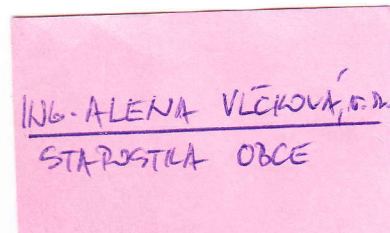 ING. ALENA VLČKOVÁ, v.r.
STAROSTKA OBCE